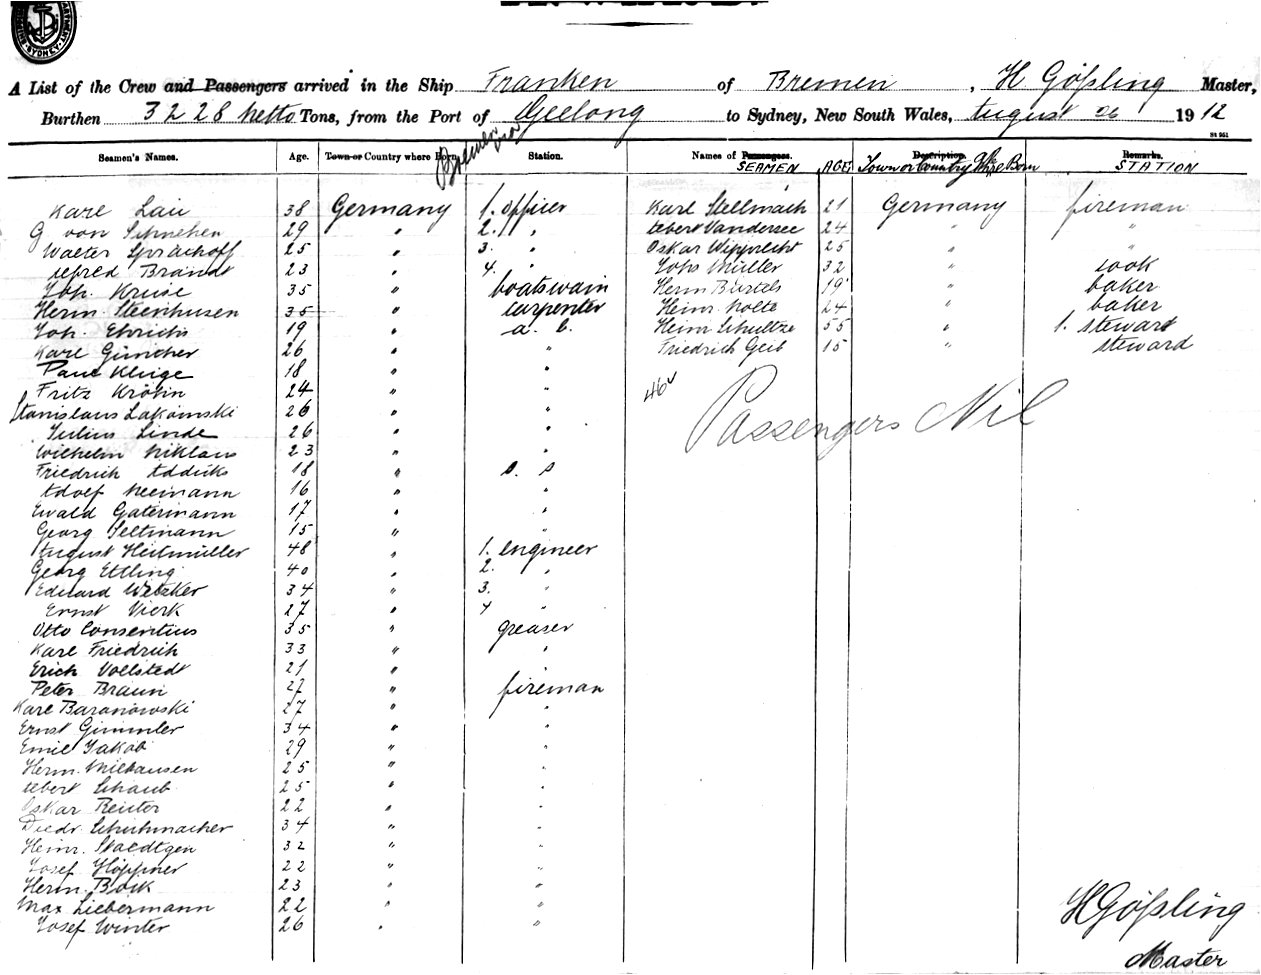 A List of the Crew and Passengers arrived in the Ship Franken of Bremen, H Gößling Master,
Burthen 3228 netto Tons, from the Port of Geelong to Sydney, New South Wales, August 26 1912
Bremen via
St 951
Seamen's Names. Age. Town or Country where Born Station. Names of Passengers. SEAMEN AGE Description. Town or Country Where Born Remarks. STATION
Karl Lau 38 Germany 1. officer Karl Stellmach 21 Germany fireman
G von Schnehen 29 " 2. " Albert Vandersee 24 " "
Walter Sprachoff 25 " 3. " Oskar Wipprecht 25 " "
Alfred Brandt 23 " 4. " Johs Müller 32 " cook
Joh. Kruse 35 " boatswain Herm Bartels 19 " baker
Herm. Steenhusen 35 " carpenter Heinr. Nolte 24 " baker
Joh. Ehrichs 19 " a. b. Heinr Schultze 55 " 1. steward
Karl Günther 26 " " Friedrich Geib 15 " steward
Paul Kluge 18 " "
Fritz Krohn 24 " " 46
Stanislaus Lakomski 26 " " Passengers Nil
Julius Linde 26 " "
Wilhelm Niklaus 23 " "
Friedrich Addicks 18 " o. s
Adolf Neemann 16 " "
Ewald Gatermann 17 " "
Georg Seltmann 15 " "
August Heitmüller 48 " 1. engineer
Georg Ettling 40 " 2. "
Eduard Wetzker 34 " 3. "
Ernst Vierk 27 " 4 "
Otto Consentius 35 " greaser
Karl Friedrich 33 " "
Erich Vollstedt 21 " "
Peter Braun 27 " fireman
Karl Baranowski 27 " "
Ernst Gimmler 34 " "
Emil Jakob 29 " "
Herm. Milhausen 25 " "
Albert Schaub 25 " "
Oskar Reuter 22 " "
Diedr Schuhmacher 34 " "
Heinr. Staedtgen 32 " "
Josef Höppner 22 " "
Herm. Bock 23 " "
Max Liebermann 22 " "
Josef Winter 26 " "
H Gößling
Master